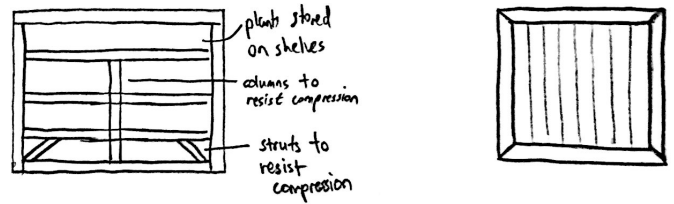 plants stored
on shelves
columns to
resist compression
struts to
resist
compression